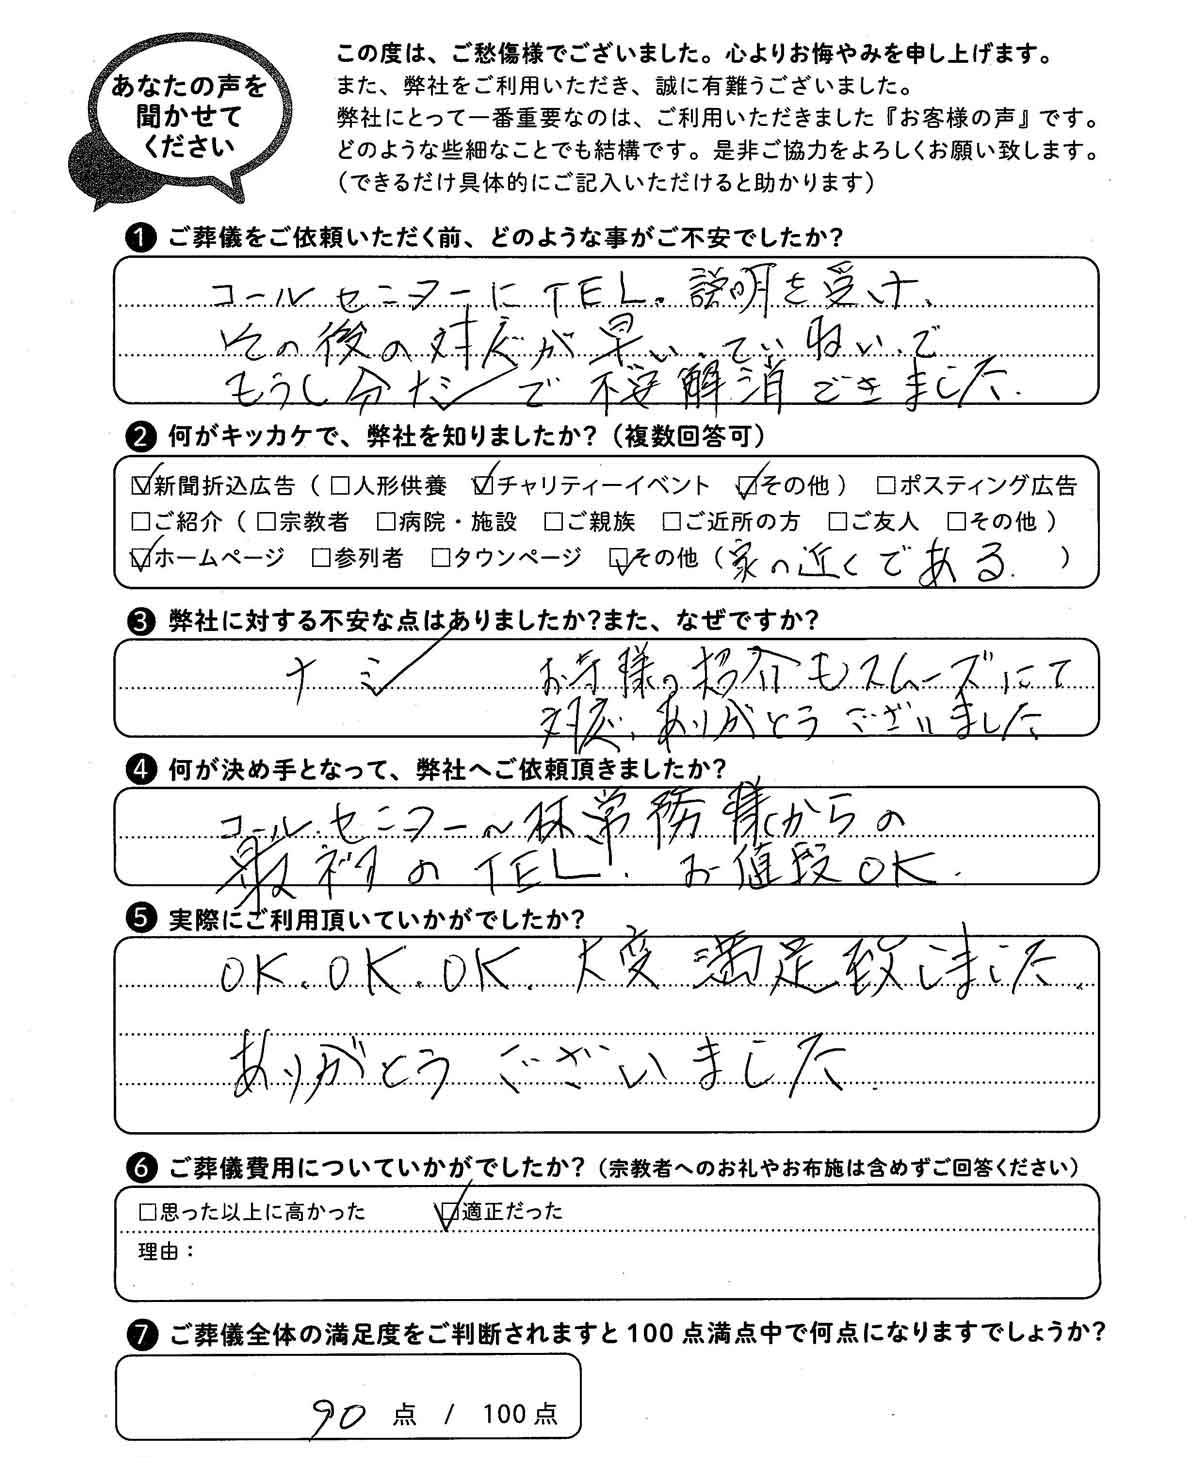 あなたの声を
聞かせて
ください
この度は、ご愁傷様でございました。心よりお悔やみを申し上げます。
また、弊社をご利用いただき、誠に有難うございました。
弊社にとって一番重要なのは、ご利用いただきました『お客様の声』です。
どのような些細なことでも結構です。是非ご協力をよろしくお願い致します。
（できるだけ具体的にご記入いただけると助かります）
❶ ご葬儀をご依頼いただく前、どのような事がご不安でしたか？
コールセンターにTEL。説明を受け、
その後の対応が早い、ていねいで
もうし分ナシで不安解消できました.
❷ 何がキッカケで、弊社を知りましたか？（複数回答可）
☑新聞折込広告（□人形供養 ☑チャリティーイベント ☑その他） □ポスティング広告
□ご紹介（□宗教者 □病院・施設 □ご親族 □ご近所の方 □ご友人 □その他）
☑ホームページ □参列者 □タウンページ ☑その他（家の近くである.）
❸ 弊社に対する不安な点はありましたか？また、なぜですか？
ナシ お寺様の紹介もスムーズにて
対応、ありがとうございました
❹ 何が決め手となって、弊社へご依頼頂きましたか？
コールセンター〜林常務様からの
最初のTEL! お値段OK.
❺ 実際にご利用頂いていかがでしたか？
OK.OK.OK. 大変満足致しました.
ありがとうございました.
❻ ご葬儀費用についていかがでしたか？（宗教者へのお礼やお布施は含めずご回答ください）
□思った以上に高かった ☑適正だった
理由：
❼ ご葬儀全体の満足度をご判断されますと100点満点中で何点になりますでしょうか？
90 点 / 100点